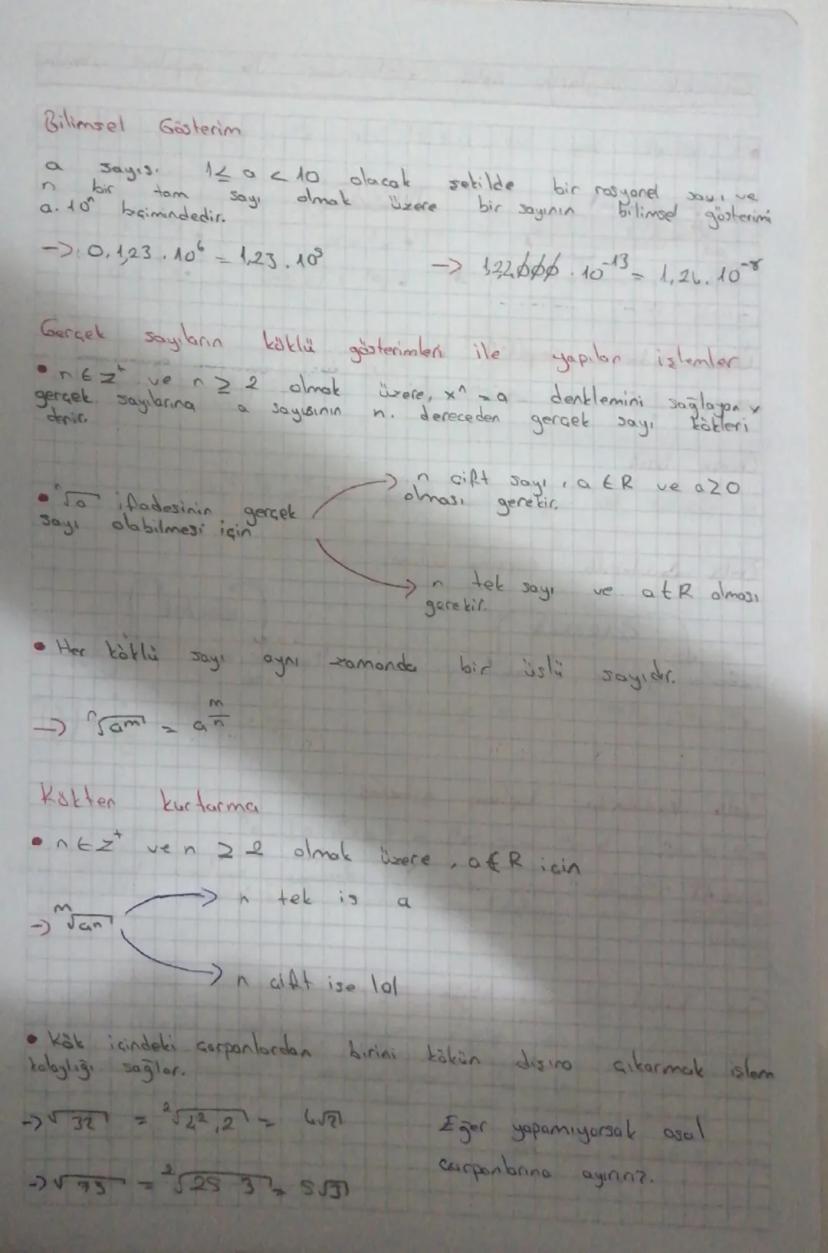 Bilimsel Gösterim
a sayısı 1 ≤ a < 10 olacak şekilde bir rasyonel sayı ve
n bir tam sayı olmak üzere bir sayının bilimsel gösterimi
a.10ⁿ biçimindedir.
→ 0,1,23.10⁶ = 1,23.10⁵ → 10⁻¹³ = 1,26.10⁻⁸
Gerçek sayıların köklü gösterimleri ile yapılan işlemler
• n ∈ Z⁺ ve n ≥ 2 olmak üzere, xⁿ = a denklemini sağlayan x
gerçek sayılarına a sayısının n. dereceden gerçek sayı kökleri
denir.
• ⁿ√a ifadesinin gerçek
sayı olabilmesi için
→ n çift sayı, a ∈ R ve a ≥ 0
olması gerekir.
→ n tek sayı ve a ∈ R olması
gerekir.
• Her köklü sayı aynı zamanda bir üslü sayıdır.
→ ⁿ√aᵐ = a^(m/n)
Kökten kurtarma
• n ∈ Z⁺ ve n ≥ 2 olmak üzere, a ∈ R için
→ ᵐ√aⁿ
→ n tek is a
→ n çift ise |a|
• Kök içindeki çarpanlardan birini kökün dışına çıkarmak işlem
kolaylığı sağlar.
→ √32 = ²√4².2 = 4√2 Eğer yapamıyorsak asal
çarpanlarına ayırırız.
→ √75 = ²√25 3 = 5√3